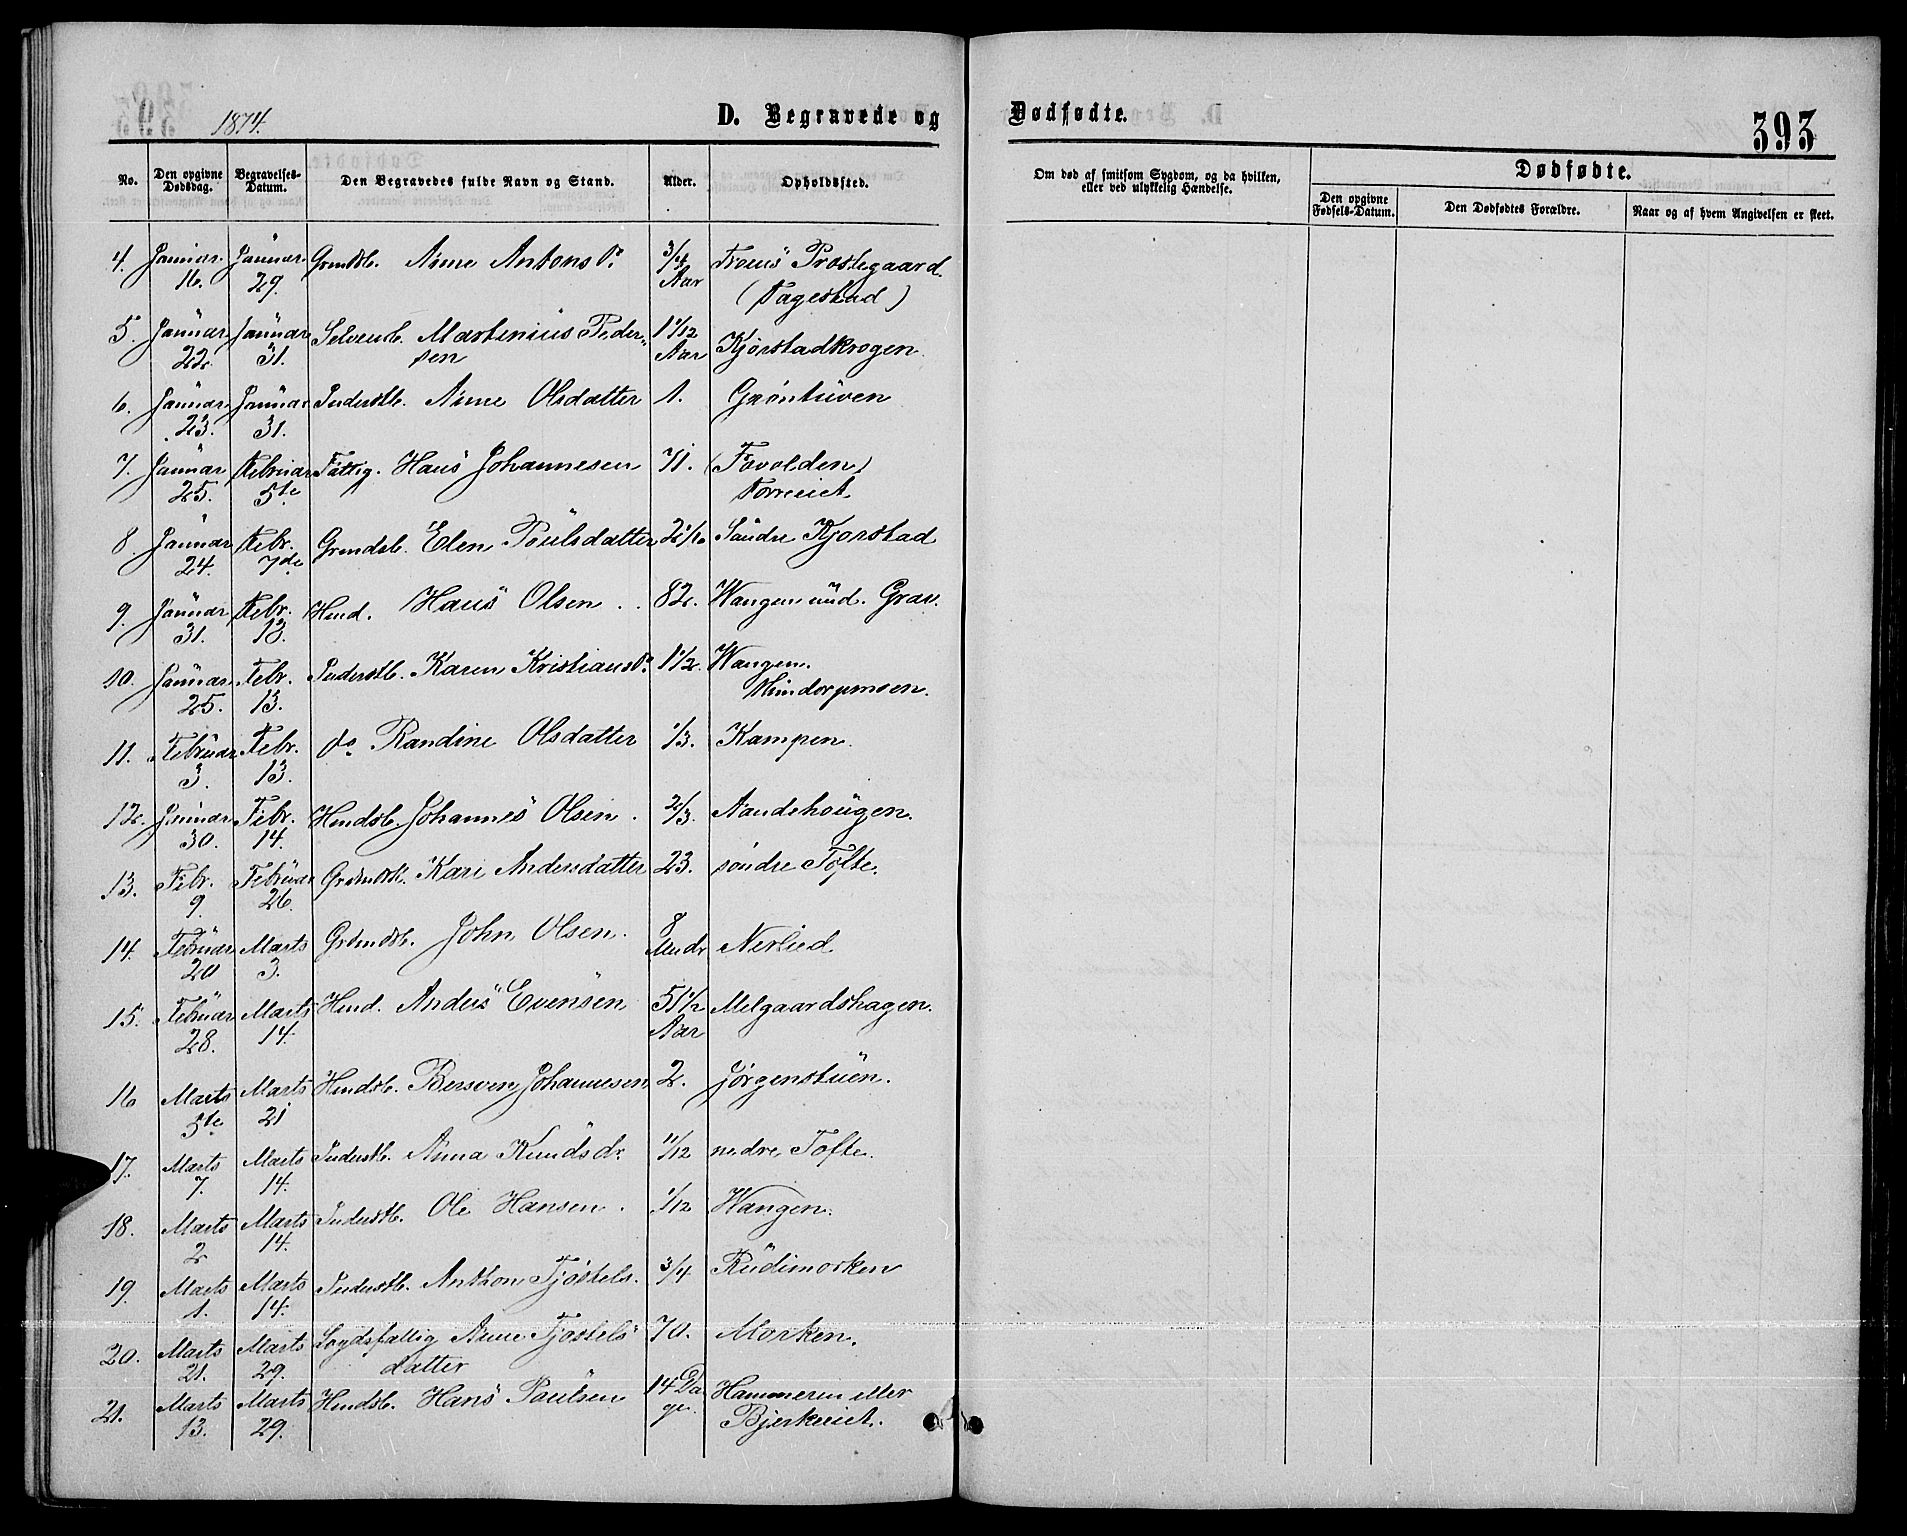 1874.
D. Begravede og
Dødfødte.
393
No.
Den opgivne Dødsdag.
Begravelses-Datum.
Den Begravedes fulde Navn og Stand.
Alder.
Opholdssted.
Om død af smitsom Sygdom, og da hvilken, eller ved ulykkelig Hændelse.
Dødfødte.
Den opgivne Fødsels-Datum.
Den Dødfødtes Forældre.
Naar og af hvem Angivelsen er skeet.
4. Januar 16. Januar 29. Grmdsb. Anne Antonsd. 3/4 Aar Præstegaard
5. Januar 22. Januar 31. Selveierb. Martinius Pedersen 1 1/12 Aar Kjørstadkrogen.
6. Januar 23. Januar 31. Inderstb. Anne Olsdatter 1. Grøntuven
7. Januar 25. Februar 5te Fattig. Hans Johannesen 71. (Fovolden)
8. Januar 24. Febr. 7de Grmdsb. Elen Poulsdatter Søndre Kjorstad
9. Januar 31. Febr. 13. Hmd. Hans Olsen 82. Wangen und. Grav.
10. Januar 25. Febr. 13. Inderstb. Karen Kristiansd. 1 1/2. Wangen
11. Februar 3. Febr. 13. do Randine Olsdatter 1/3. Kampen.
12. Januar 30. Febr. 14. Hmdsb. Johannes Olsen. 2/3. Aandehougen.
13. Febr. 9. Februar 26. Grdmdsk. Kari Andersdatter 23. søndre Tofte.
14. Februar 20 Marts 3. Grdmdsb. John Olsen. 8 Mndr Nerlied
15. Februar 28. Marts 14. Hmd. Anders Evensen 51 1/2 Aar Melgaardshagen.
16 Marts 5te Marts 21 Hmdsb. Bersven Johannesen 2. Jørgenstuen.
17. Marts 7. Marts 14. Inderstb. Anna Knudsdr. 11/12 nedre Tofte.
18. Marts 2 Marts 14. Inderstb. Ole Hansen. 1/12 Wangen.
19. Marts 1. Marts 14. Inderstb. Anthon Tjøstels. 3/4 Rudimorken
20. Marts 21. Marts 29. Lægdsfattig Anne Tjøstelsdatter 70. Morken.
21. Marts 13. Marts 29. Hmdsb. Hans Poulsen 14 Dage. Hammeren eller